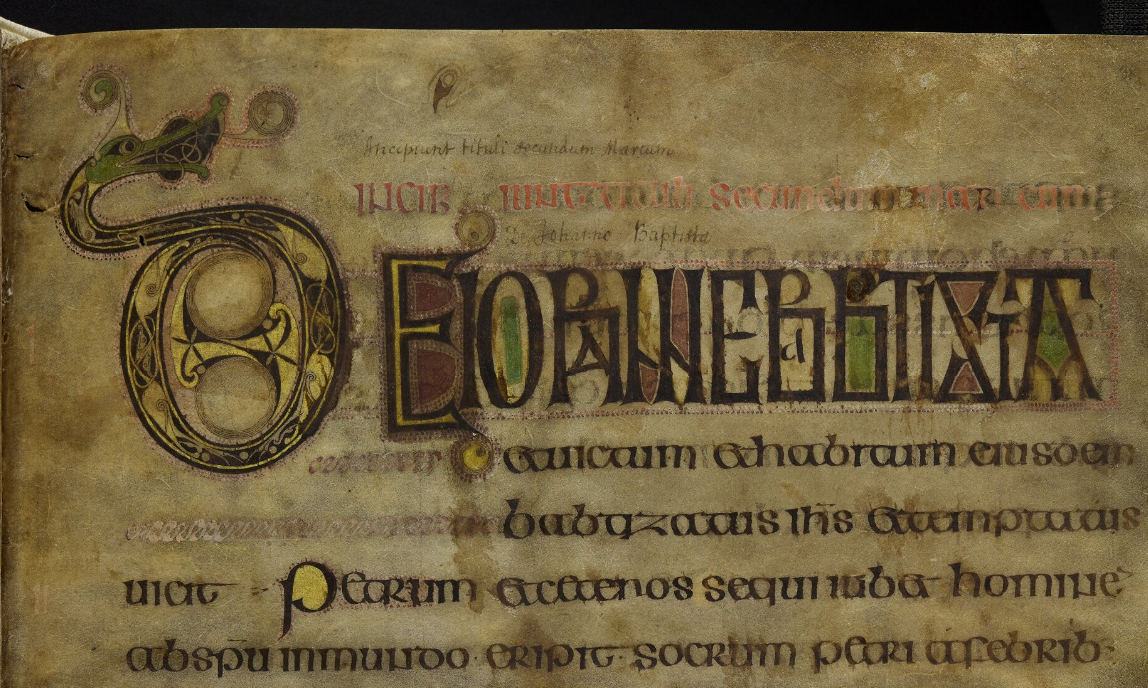 Incipiunt tituli secundum Marcum
INCIP IUNT TITULI secundum marcum
De Johanne Baptista
DE IOHANNE BABTIXTA
et uictum et habitum eiusdem
babtizatus ihs et temptatus
uicit Petrum et ceteros sequi iubet homine
ab spu inmundo eripit socrum petri a febrib